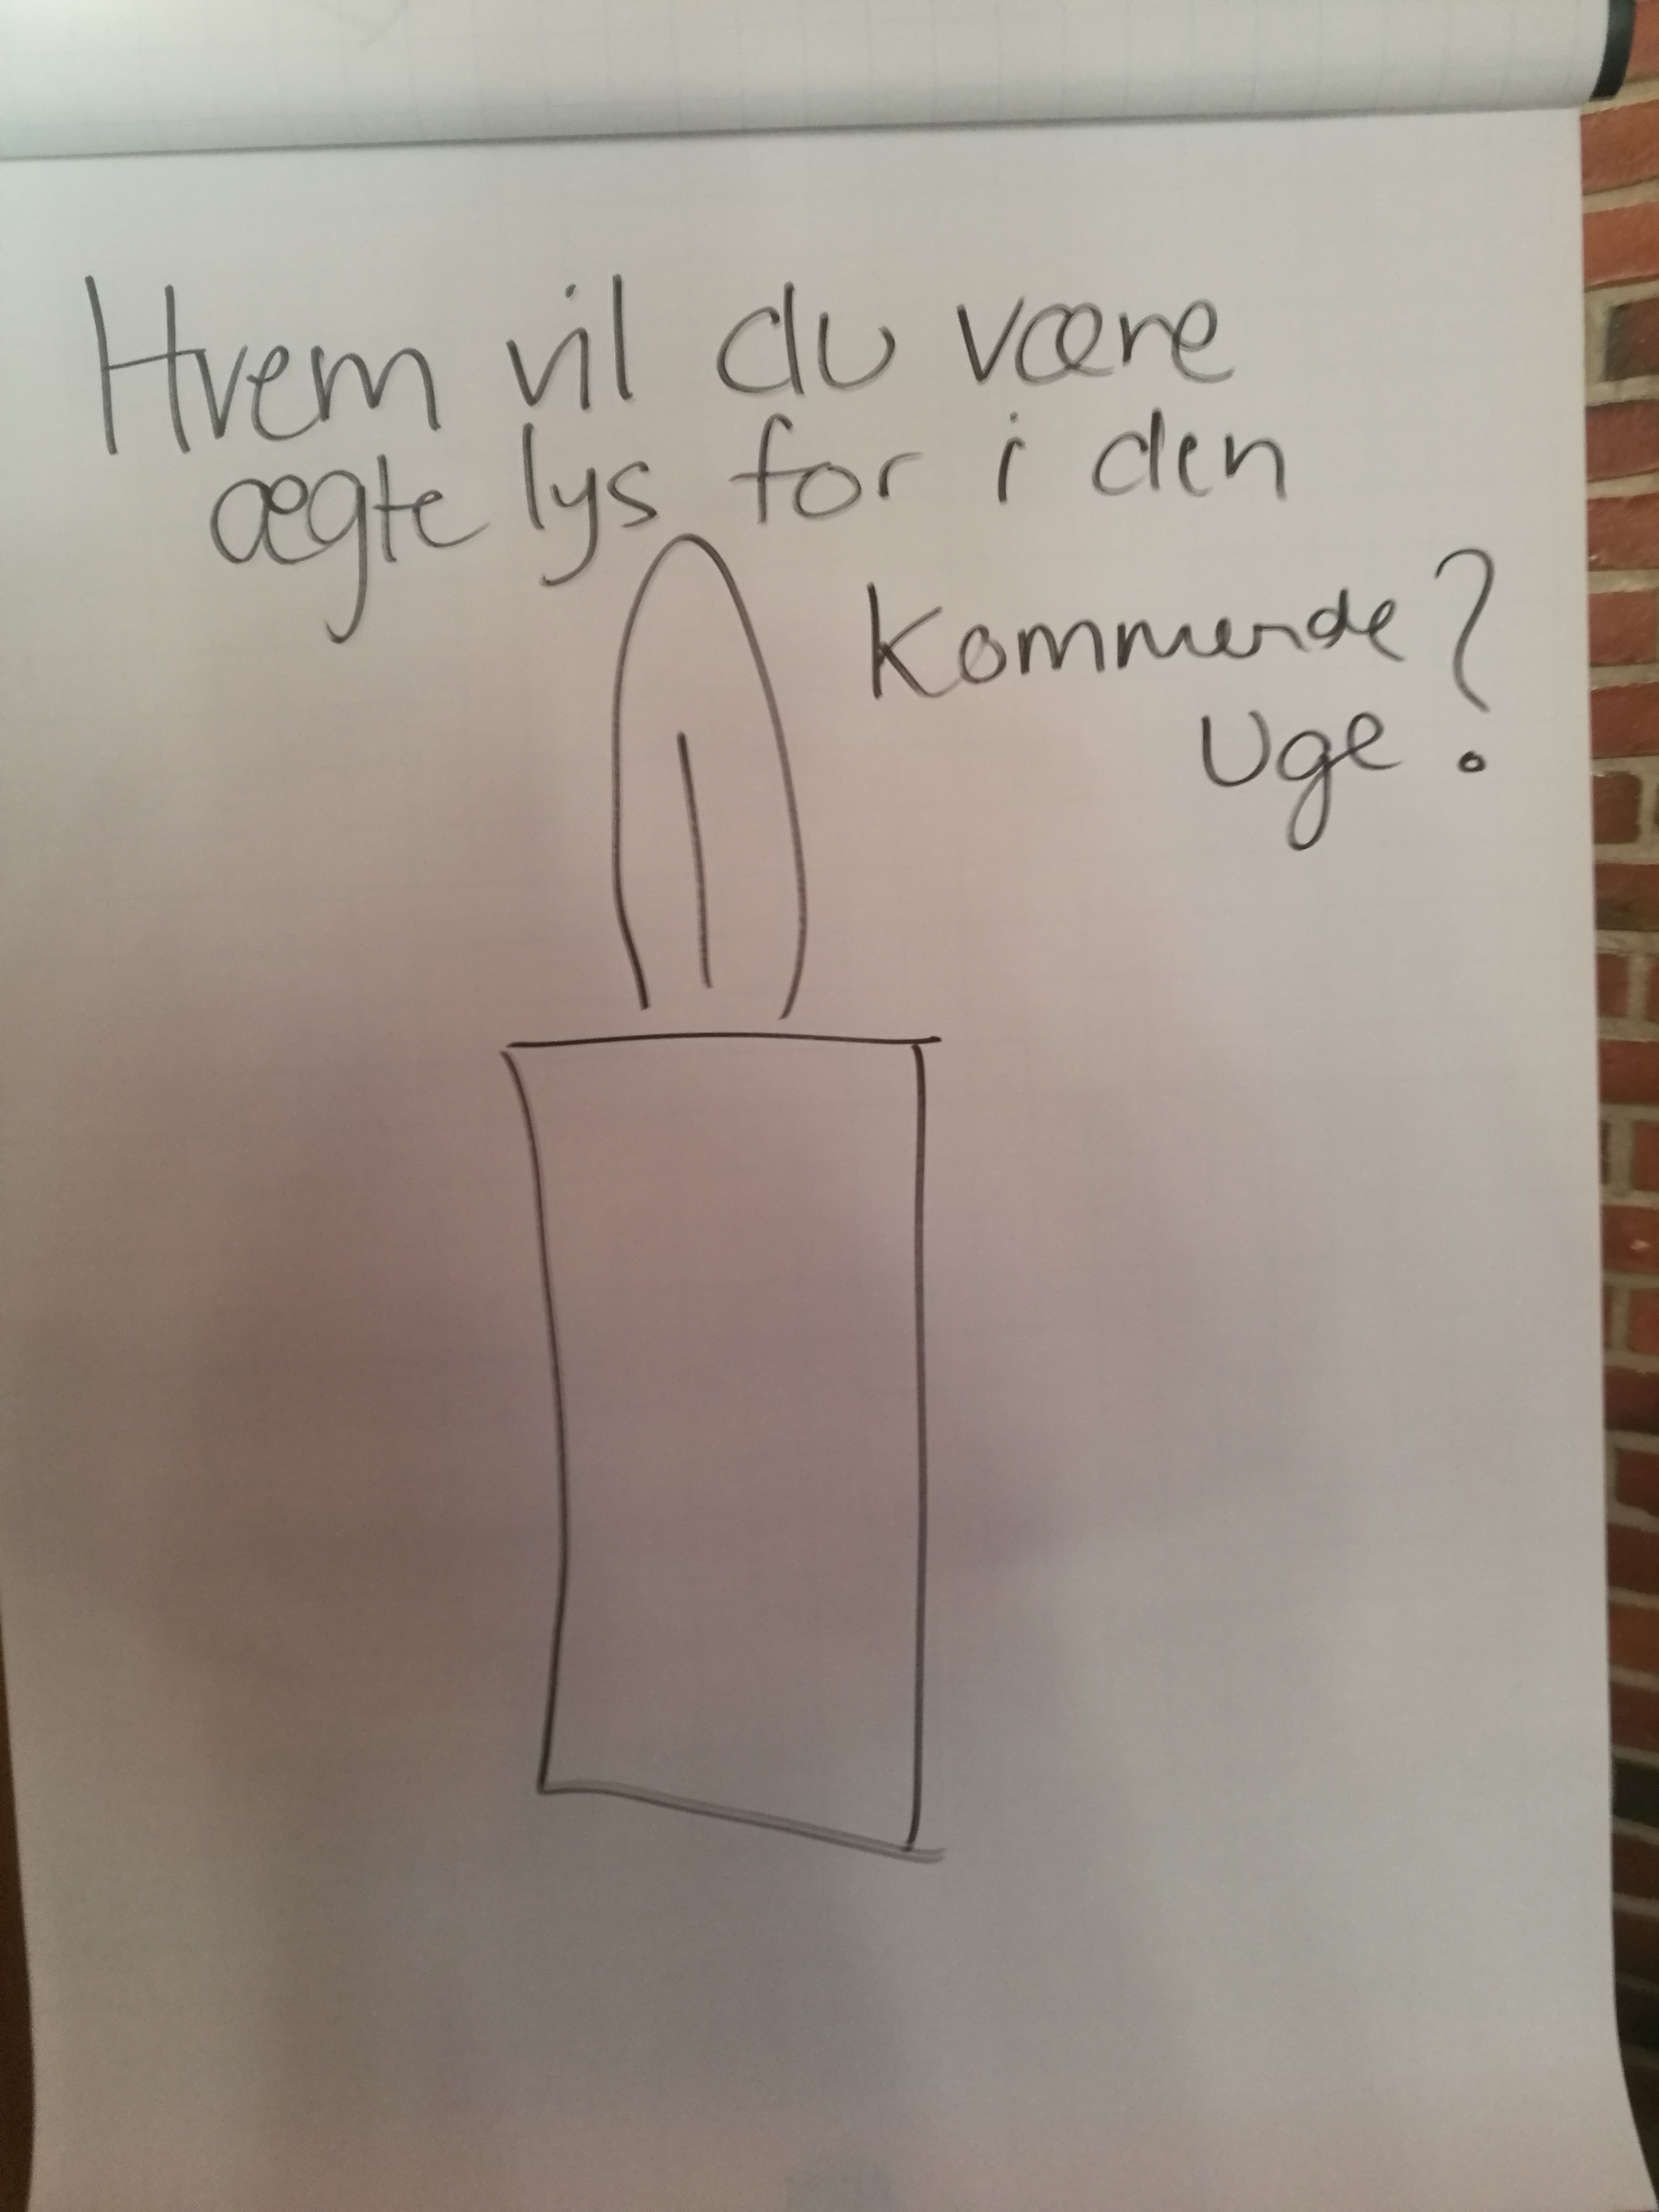 Hvem vil du være
ægte lys for i den
kommende?
Uge.